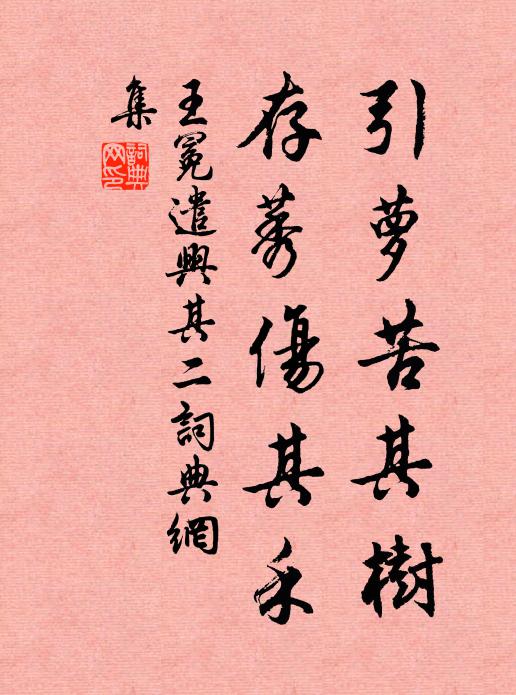 引萝苦其樹
存莠傷其禾
王冕遣興其二詞典網
集
詞典網印